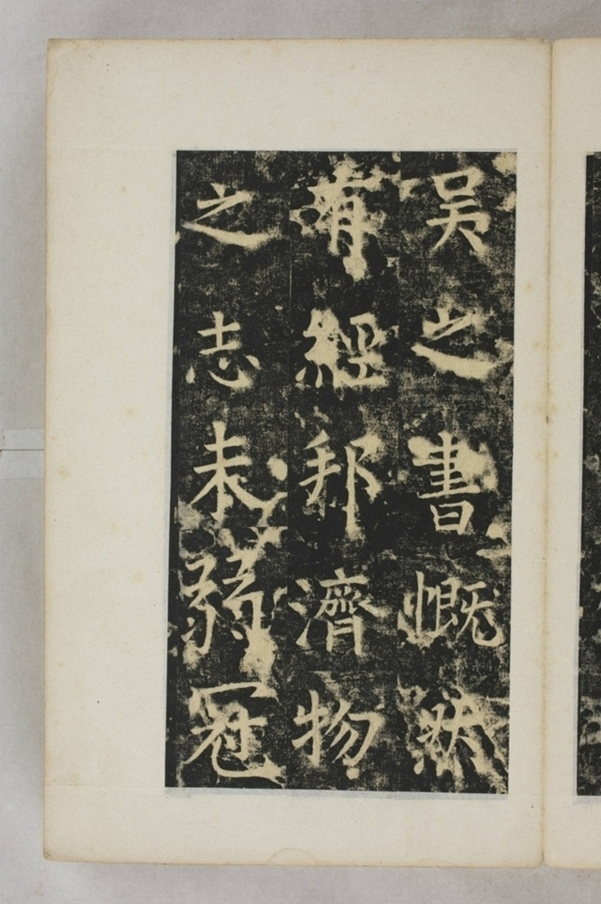 吴之書慨然
有經邦濟物
之志未弱冠